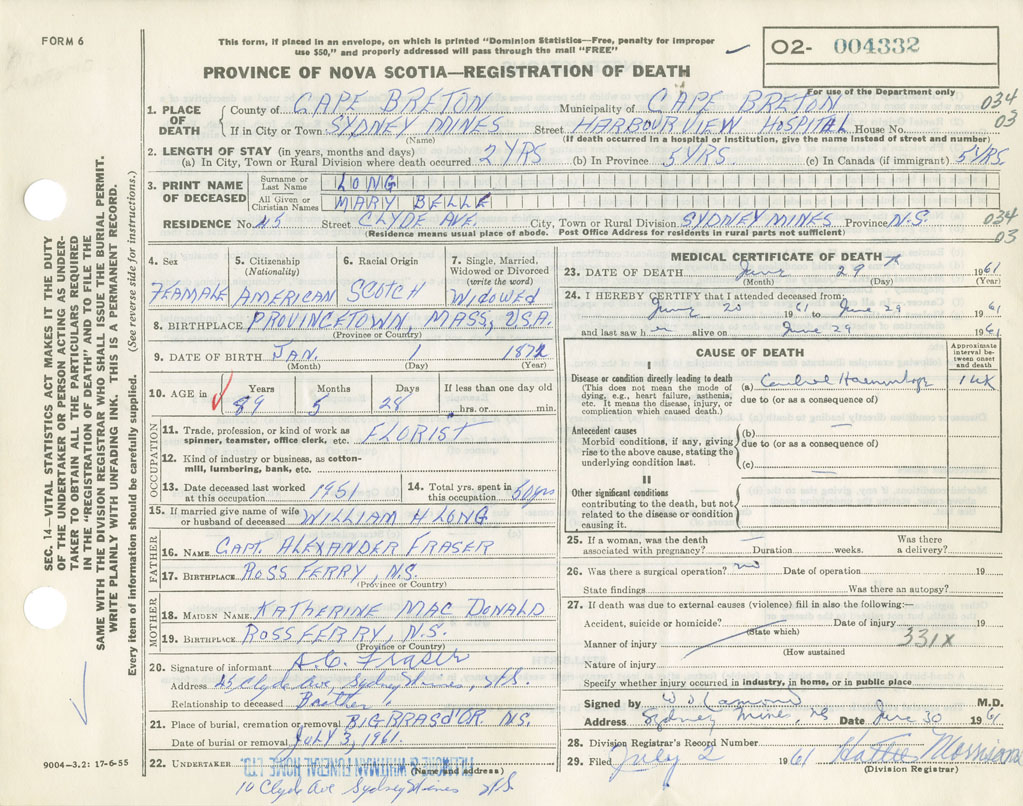 FORM 6
This form, if placed in an envelope, on which is printed "Dominion Statistics—Free, penalty for improper
use $50," and properly addressed will pass through the mail "FREE"
O2- 004332
PROVINCE OF NOVA SCOTIA—REGISTRATION OF DEATH
For use of the Department only
1. PLACE OF DEATH County of CAPE BRETON Municipality of CAPE BRETON 034
If in City or Town SYDNEY MINES Street HARBOUR VIEW HOSPITAL House No. 03
(Name) (If death occurred in a hospital or institution, give the name instead of street and number)
2. LENGTH OF STAY (in years, months and days)
(a) In City, Town or Rural Division where death occurred 2 YRS (b) In Province 5 YRS. (c) In Canada (if immigrant) 5 YRS.
3. PRINT NAME OF DECEASED
Surname or Last Name LONG
All Given or Christian Names MARY BELLE
RESIDENCE No. 25 Street CLYDE AVE. City, Town or Rural Division SYDNEY MINES Province N.S. 034
(Residence means usual place of abode. Post Office Address for residents in rural parts not sufficient) 03
4. Sex
FEAMALE
5. Citizenship
(Nationality)
AMERICAN
6. Racial Origin
SCOTCH
7. Single, Married,
Widowed or Divorced
(write the word)
WIDOWED
8. BIRTHPLACE PROVINCETOWN, MASS, USA.
(Province or Country)
9. DATE OF BIRTH JAN. 1 1872
(Month) (Day) (Year)
10. AGE in Years Months Days If less than one day old
89 5 28 hrs. or min.
OCCUPATION
11. Trade, profession, or kind of work as
spinner, teamster, office clerk, etc. FLORIST
12. Kind of industry or business, as cotton-
mill, lumbering, bank, etc.
13. Date deceased last worked
at this occupation 1951
14. Total yrs. spent in
this occupation 50 yrs
15. If married give name of wife
or husband of deceased WILLIAM H LONG
FATHER
16. NAME CAPT. ALEXANDER FRASER
17. BIRTHPLACE ROSS FERRY, N.S.
(Province or Country)
MOTHER
18. MAIDEN NAME KATHERINE MAC DONALD
19. BIRTHPLACE ROSS FERRY, N.S.
(Province or Country)
20. Signature of informant A.C. Fraser
Address 25 Clyde Ave, Sydney Mines, N.S.
Relationship to deceased Brother
21. Place of burial, cremation or removal BIG BRAS d'OR N.S.
Date of burial or removal JULY 3, 1961.
22. UNDERTAKER FUNERAL HOME LTD.
(Name and address)
10 Clyde Ave Sydney Mines N.S.
MEDICAL CERTIFICATE OF DEATH
23. DATE OF DEATH June 29 1961
(Month) (Day) (Year)
24. I HEREBY CERTIFY that I attended deceased from
June 20 1961 to June 29 1961
and last saw her alive on June 29 1961
CAUSE OF DEATH
Approximate
interval be-
tween onset
and death
I
Disease or condition directly leading to death
(This does not mean the mode of
dying, e.g., heart failure, asthenia,
etc. It means the disease, injury, or
complication which caused death.)
(a) Cerebral Haemorrhage 1 wk
due to (or as a consequence of)
Antecedent causes
Morbid conditions, if any, giving
rise to the above cause, stating the
underlying condition last.
(b)
due to (or as a consequence of)
(c)
II
Other significant conditions
contributing to the death, but not
related to the disease or condition
causing it.
25. If a woman, was the death Was there
associated with pregnancy? Duration weeks. a delivery?
26. Was there a surgical operation? no Date of operation 19
State findings Was there an autopsy?
27. If death was due to external causes (violence) fill in also the following:—
Accident, suicide or homicide? Date of injury 19
(State which)
Manner of injury 331X
(How sustained
Nature of injury
Specify whether injury occurred in industry, in home, or in public place
Signed by M.D.
Address Sydney Mines, NS Date June 30 1961
28. Division Registrar's Record Number
29. Filed July 2 1961 Hattie Morrison
(Division Registrar)
SEC. 14—VITAL STATISTICS ACT MAKES IT THE DUTY
OF THE UNDERTAKER OR PERSON ACTING AS UNDER-
TAKER TO OBTAIN ALL THE PARTICULARS REQUIRED
IN THE "REGISTRATION OF DEATH" AND TO FILE THE
SAME WITH THE DIVISION REGISTRAR WHO SHALL ISSUE THE BURIAL PERMIT.
WRITE PLAINLY WITH UNFADING INK. THIS IS A PERMANENT RECORD.
Every item of information should be carefully supplied. (See reverse side for instructions.)
9004—3.2: 17-6-55